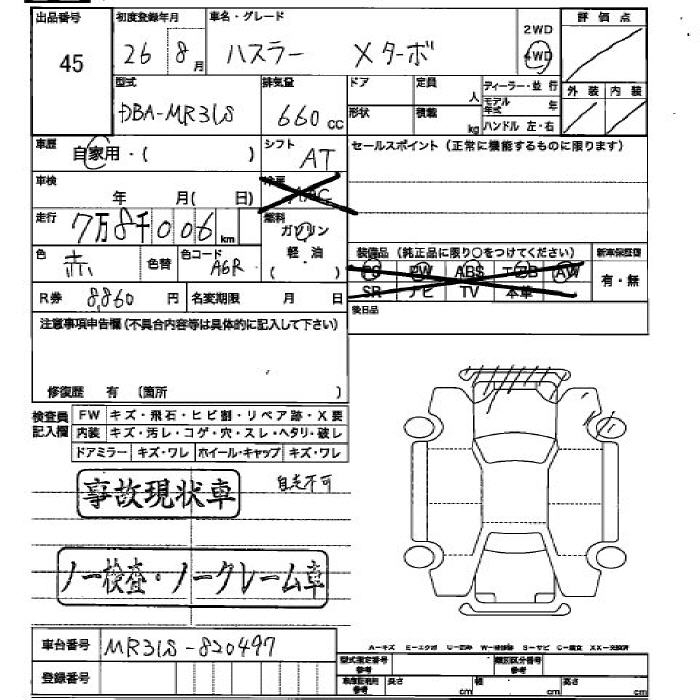 出品番号 初度登録年月 車名・グレード 2WD 評価点
45 26 8月 ハスラー Xターボ 4WD
型式 排気量 ドア 定員 人 ディーラー・並行 外装 内装
DBA-MR31S 660cc 形状 積載 kg モデル年式 年
ハンドル 左・右
車歴 自家用・( ) シフト AT セールスポイント(正常に機能するものに限ります)
車検 年 月( 日) 冷房 AAC
走行 7万8千006km 燃料 ガソリン
色 赤 色替 色コード A6R 軽・油 ( ) 装備品(純正品に限り○をつけてください) 新車保証書
PS PW ABS エアB AW 有・無
R券 8,860円 名変期限 月 日 SR ナビ TV 本革
注意事項申告欄(不具合内容等は具体的に記入して下さい) 後日品
修復歴 有 (箇所 )
検査員記入欄 FW キズ・飛石・ヒビ割・リペア跡・X要
内装 キズ・汚レ・コゲ・穴・スレ・ヘタリ・破レ
ドアミラー キズ・ワレ ホイール・キャップ キズ・ワレ
事故現状車 自走不可
ノー検査・ノークレーム車
車台番号 MR31S-820497
A-キズ E-エクボ U-凹み W-補修跡 S-サビ C-腐食 XX-交換済
登録番号 型式指定番号 参考 類別区分番号 参考
車庫証明用 参考 長さ cm 幅 cm 高さ cm